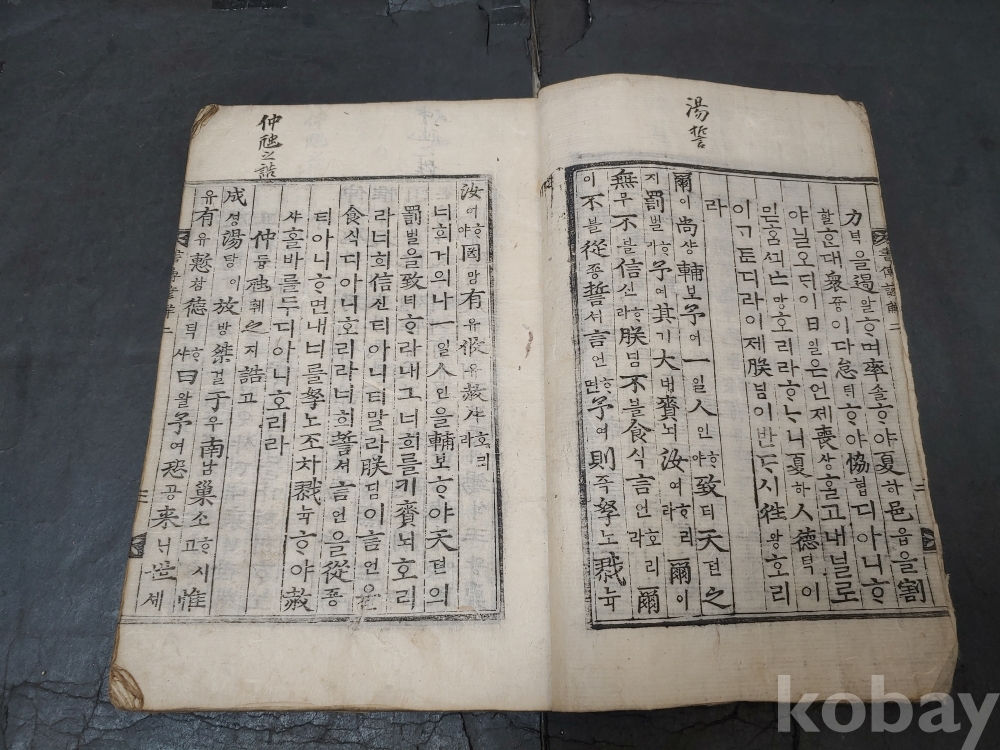 湯誓
力력을遏알ᄒᆞ며率솔ᄒᆞ야夏하邑읍을割
할ᄒᆞᆫ대衆즁이다怠ᄐᆡᄒᆞ야協협디아니ᄒᆞ
야닐오ᄃᆡ이日일은언제喪상ᄒᆞ고내널로
홈ᄭᅴ망호리라ᄒᆞᄂᆞ니夏하人德덕이
이ᄀᆞᄐᆞ디라이제朕딤이반ᄃᆞ시往왕호리
라
爾이尚샹輔보予여一일人인ᄒᆞ야致티天텬之
지罰벌ᄒᆞ라予여其기大대賚뇌汝여호리라爾이
無무不블信신ᄒᆞ라朕딤不블食식言언호리라爾
이不블從죵誓셔言언ᄒᆞ면予여則즉孥노戮눅
書傳諺解 二
仲虺之誥
汝여ᄒᆞ야罔망有유攸유赦샤호리라
너희거의나一일人인을輔보ᄒᆞ야天텬의
罰벌을致티ᄒᆞ라내그너희를키賚뇌호리
라너희信신티아니티말라朕딤이言언을
食식디아니호리라너희誓셔言언을從죵
티아니ᄒᆞ면내너를孥노조차戮눅ᄒᆞ야赦
샤ᄒᆞᆯ바를두디아니호리라
仲듕虺훼之지誥고
成셩湯탕이放방桀걸于우南남巢소ᄒᆞ시고惟
유有유慙참德덕ᄒᆞ샤曰왈予여恐공来ᄂᆡ世셰
kobay